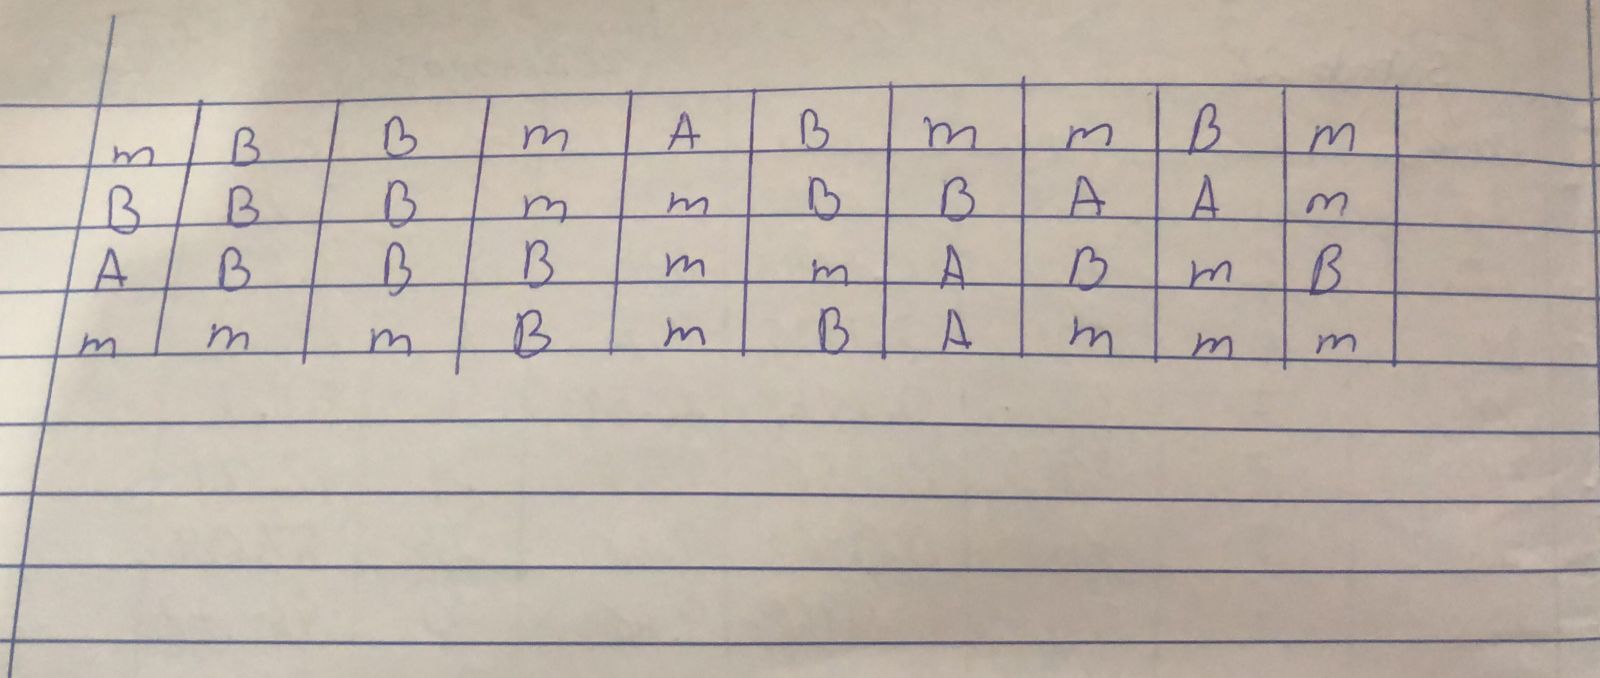 m B B m A B m m B m
B B B m m B B A A m
A B B B m m A B m B
m m m B m B A m m m